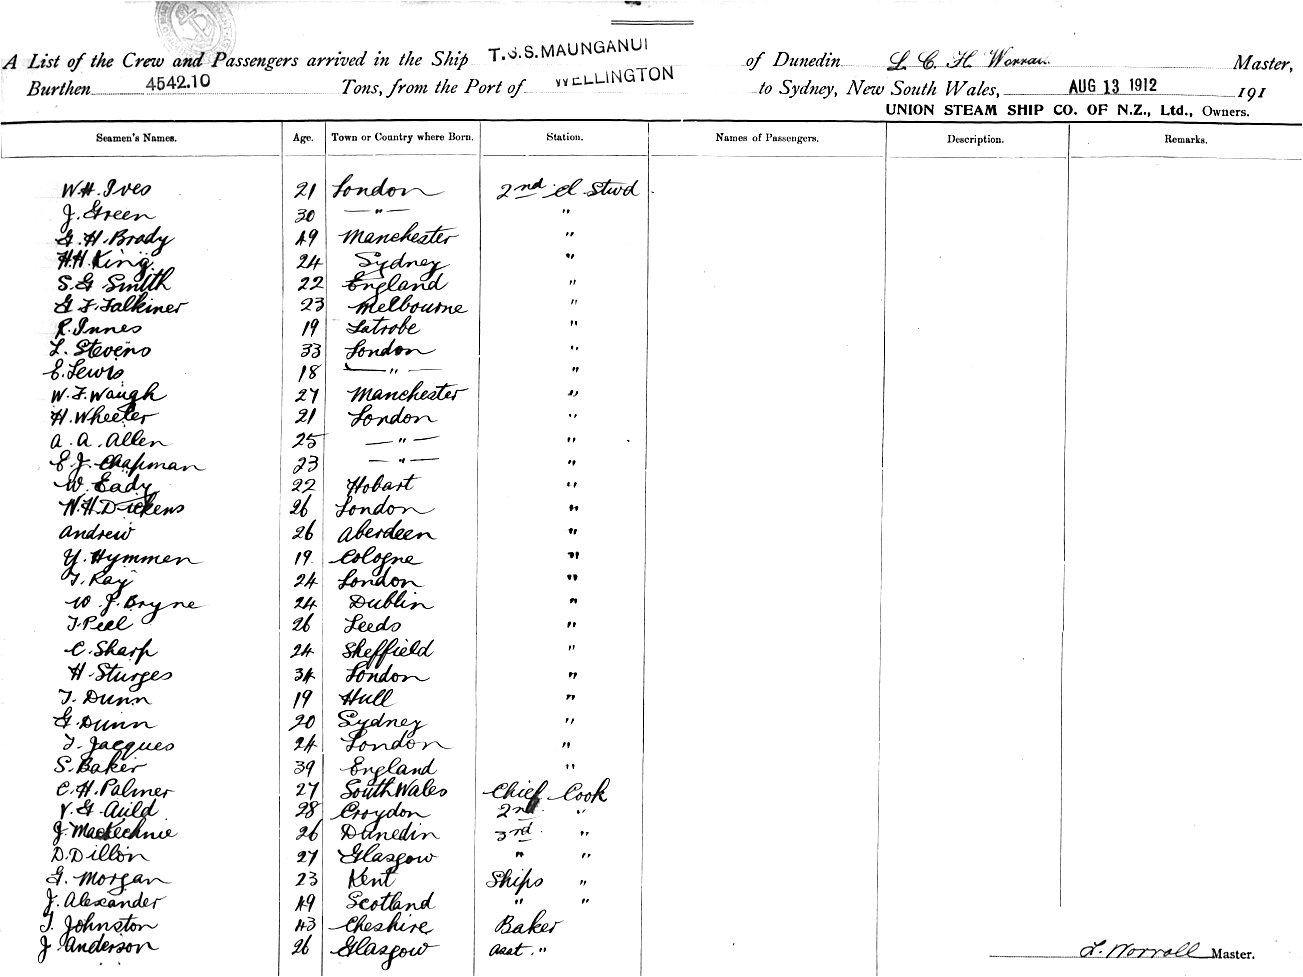 A List of the Crew and Passengers arrived in the Ship T.S.S. MAUNGANUI of Dunedin L. C. H Worrall Master,
Burthen 4542.10 Tons, from the Port of WELLINGTON to Sydney, New South Wales, AUG 13 1912 191
UNION STEAM SHIP CO. OF N.Z., Ltd., Owners.
Seamen's Names. Age. Town or Country where Born. Station. Names of Passengers. Description. Remarks.
W.H. Ives 21 London 2nd cl Stwd
J. Green 30 — " — "
G. H. Brady 49 Manchester "
H.H. King 24 Sydney "
S. G Smith 22 England "
G F. Falkiner 23 Melbourne "
R. Innes 19 Latrobe "
L. Stevens 33 London "
E. Lewis 18 — " — "
W. F. Waugh 27 Manchester "
H. Wheeler 21 London "
A. A. Allen 25 — " — "
E J. Chapman 23 — " — "
W. Eady 22 Hobart "
W.H. Dickens 26 London "
Andrew 26 Aberdeen "
Y. Hymmen 19 Cologne "
T. Ray 24 London "
W. J. Bryne 24 Dublin "
T. Peel 26 Leeds "
C. Sharp 24 Sheffield "
H. Sturges 34 London "
T. Dunn 19 Hull "
G. Dunn 20 Sydney "
T. Jacques 24 London "
S. Baker 39 England "
C. H. Palmer 27 South Wales Chief Cook
V. G Auld 28 Croydon 2nd "
J. MacKechnie 26 Dunedin 3rd "
D. Dillon 27 Glasgow " "
G. Morgan 23 Kent Ships "
J. Alexander 49 Scotland " "
T. Johnston 43 Cheshire Baker
J Anderson 26 Glasgow asst. "
L. Worrall Master.